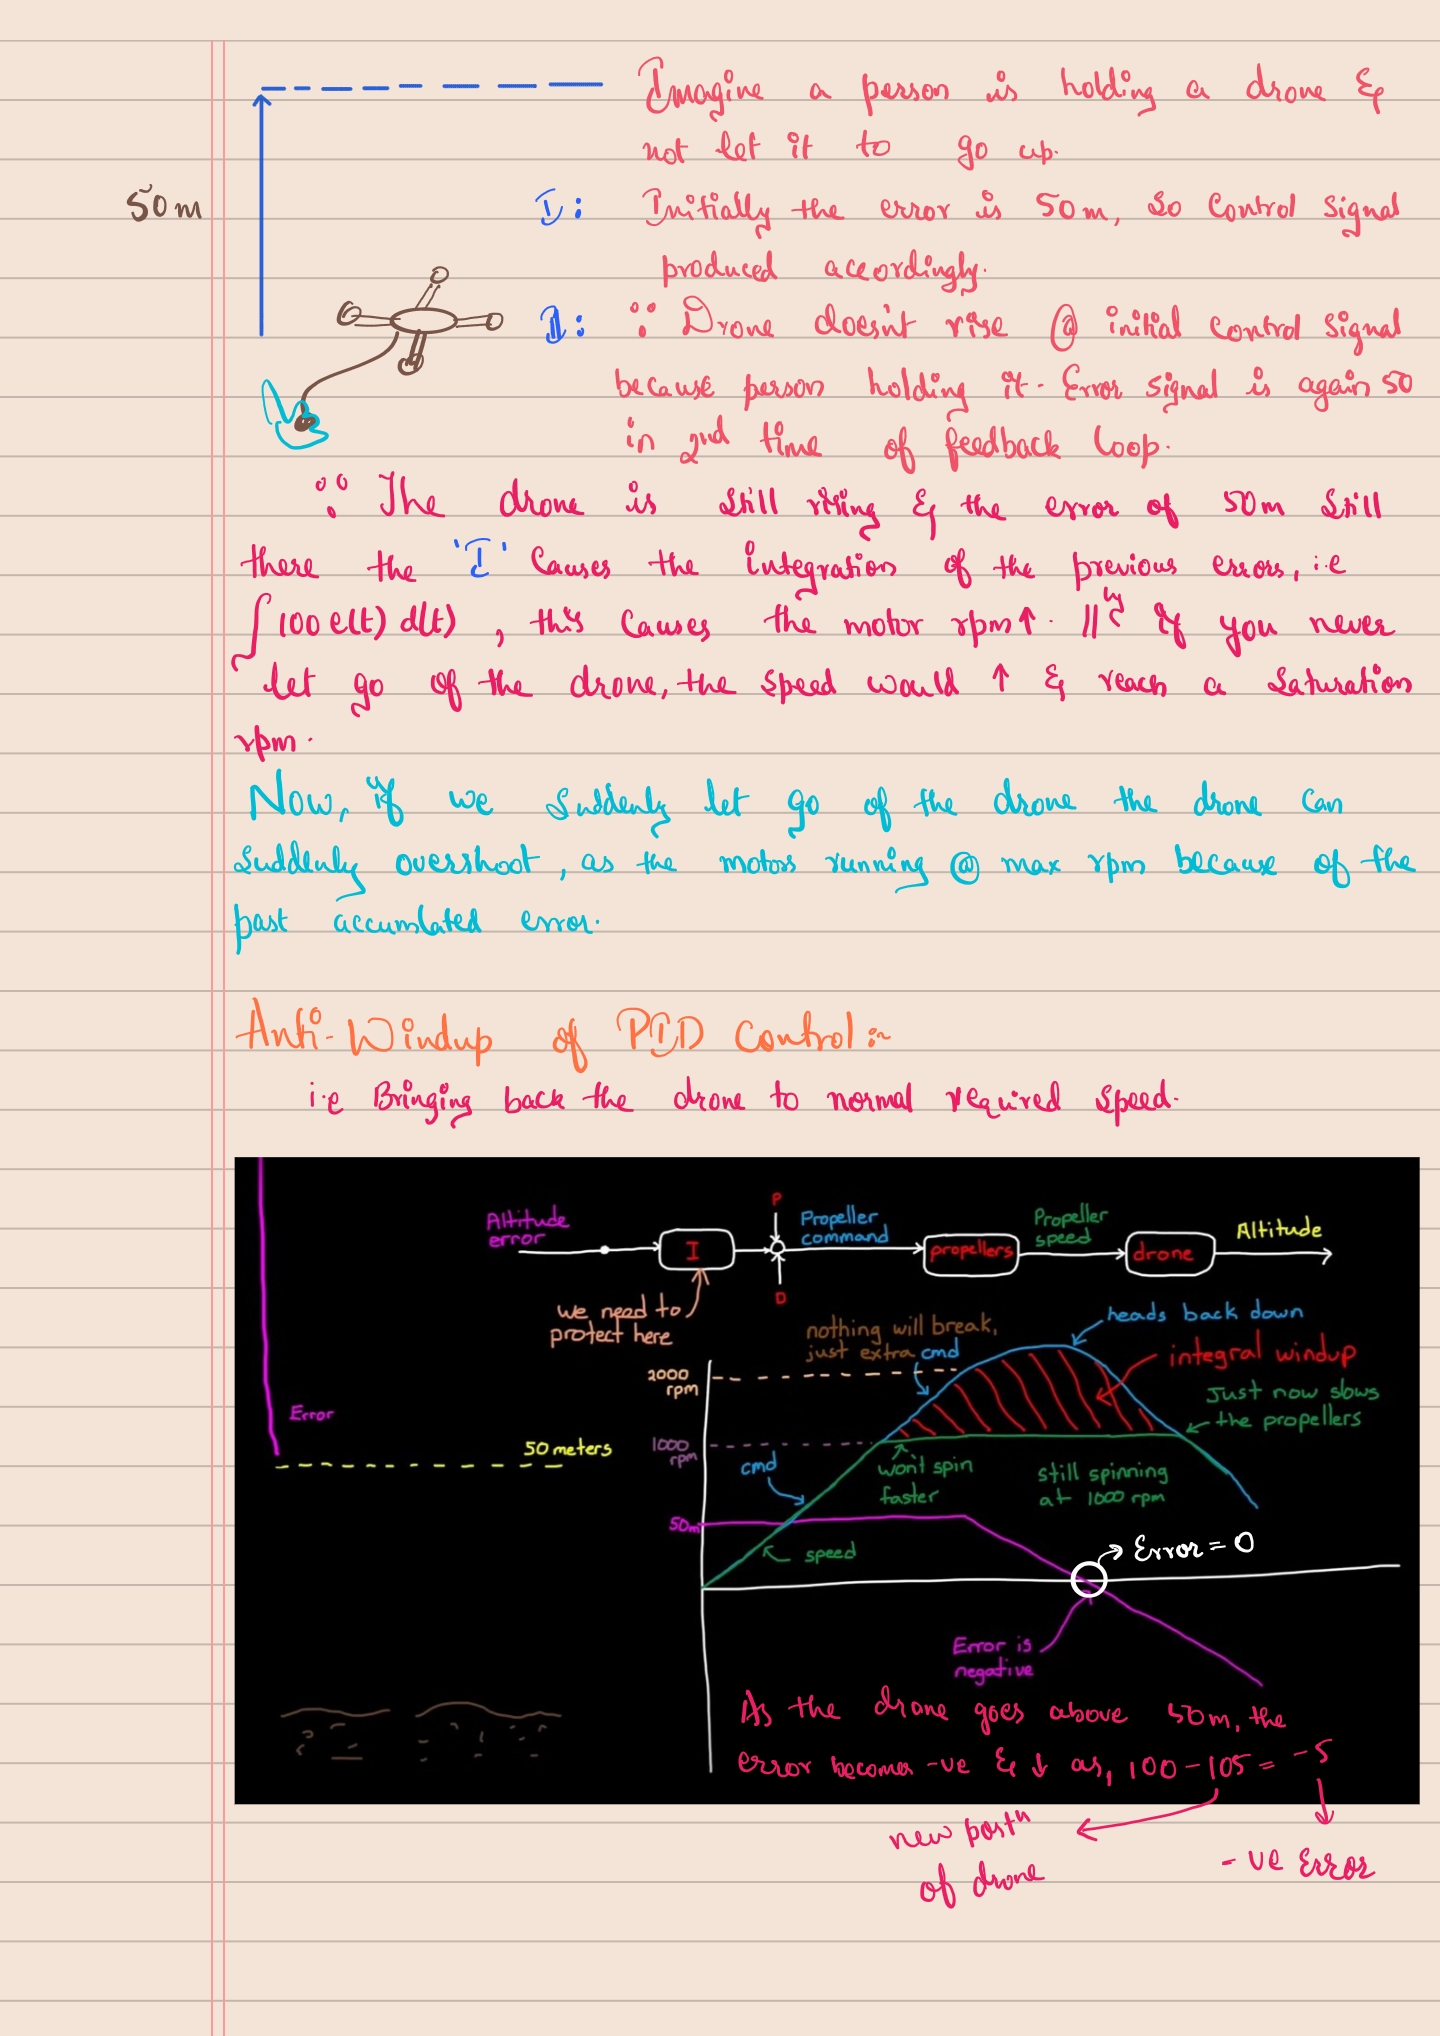 Imagine a person is holding a drone &
not let it to go up.
50m
I: Initially the error is 50m, so control signal
produced accordingly.
II: ∵ Drone doesn't rise @ initial control signal
because person holding it. Error signal is again 50
in 2nd time of feedback loop.
∵ The drone is still rising & the error of 50m still
there the 'I' causes the integration of the previous errors, i.e
∫100 e(t) d(t) , this causes the motor rpm↑. ||ly if you never
let go of the drone, the speed would ↑ & reach a saturation
rpm.
Now, if we suddenly let go of the drone the drone can
suddenly overshoot, as the motors running @ max rpm because of the
past accumlated error.
Anti-Windup of PID Control:~
i.e Bringing back the drone to normal required speed.
P
Altitude
error
I
Propeller
command
propellers
Propeller
speed
drone
Altitude
D
we need to
protect here
nothing will break,
just extra cmd
heads back down
integral windup
2000
rpm
Just now slows
the propellers
Error
50 meters
1000
rpm
cmd
won't spin
faster
still spinning
at 1000 rpm
50m
speed
Error = 0
Error is
negative
As the drone goes above 50m, the
error becomes -ve & ↓ as, 100-105 = -5
new postn
of drone
-ve Error